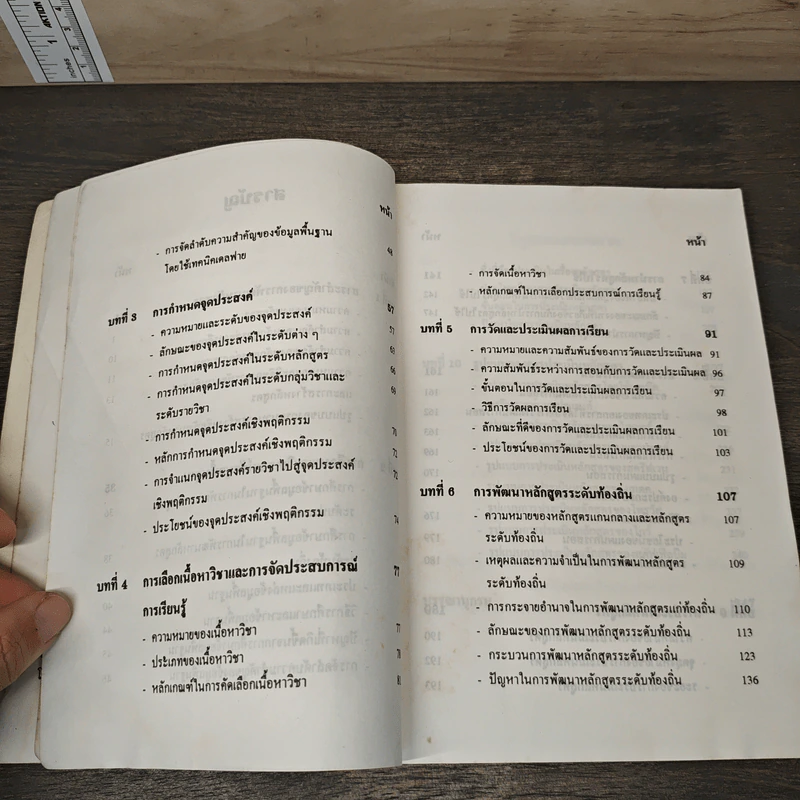 สารบัญ
หน้า
- การจัดลำดับความสำคัญของข้อมูลพื้นฐาน
โดยใช้เทคนิคเดลฟาย 48
บทที่ 3 การกำหนดจุดประสงค์ 57
- ความหมายและระดับของจุดประสงค์ 57
- ลักษณะของจุดประสงค์ในระดับต่าง ๆ
- การกำหนดจุดประสงค์ในระดับหลักสูตร 66
- การกำหนดจุดประสงค์ในระดับกลุ่มวิชาและ
ระดับรายวิชา
- การกำหนดจุดประสงค์เชิงพฤติกรรม 70
- หลักการกำหนดจุดประสงค์เชิงพฤติกรรม 72
- การจำแนกจุดประสงค์รายวิชาไปสู่จุดประสงค์
เชิงพฤติกรรม
- ประโยชน์ของจุดประสงค์เชิงพฤติกรรม 74
บทที่ 4 การเลือกเนื้อหาวิชาและการจัดประสบการณ์ 77
การเรียนรู้
- ความหมายของเนื้อหาวิชา
- ประเภทของเนื้อหาวิชา
- หลักเกณฑ์ในการคัดเลือกเนื้อหาวิชา
หน้า
- การจัดเนื้อหาวิชา 84
- หลักเกณฑ์ในการเลือกประสบการณ์การเรียนรู้ 87
บทที่ 5 การวัดและประเมินผลการเรียน 91
- ความหมายและความสัมพันธ์ของการวัดและประเมินผล 91
- ความสัมพันธ์ระหว่างการสอนกับการวัดและประเมินผล 96
- ขั้นตอนในการวัดและประเมินผลการเรียน 97
- วิธีการวัดผลการเรียน 98
- ลักษณะที่ดีของการวัดและประเมินผลการเรียน 101
- ประโยชน์ของการวัดและประเมินผลการเรียน 103
บทที่ 6 การพัฒนาหลักสูตรระดับท้องถิ่น 107
- ความหมายของหลักสูตรแกนกลางและหลักสูตร 107
ระดับท้องถิ่น
- เหตุผลและความจำเป็นในการพัฒนาหลักสูตร 109
ระดับท้องถิ่น
- การกระจายอำนาจในการพัฒนาหลักสูตรแก่ท้องถิ่น 110
- ลักษณะของการพัฒนาหลักสูตรระดับท้องถิ่น 113
- กระบวนการพัฒนาหลักสูตรระดับท้องถิ่น 123
- ปัญหาในการพัฒนาหลักสูตรระดับท้องถิ่น 136